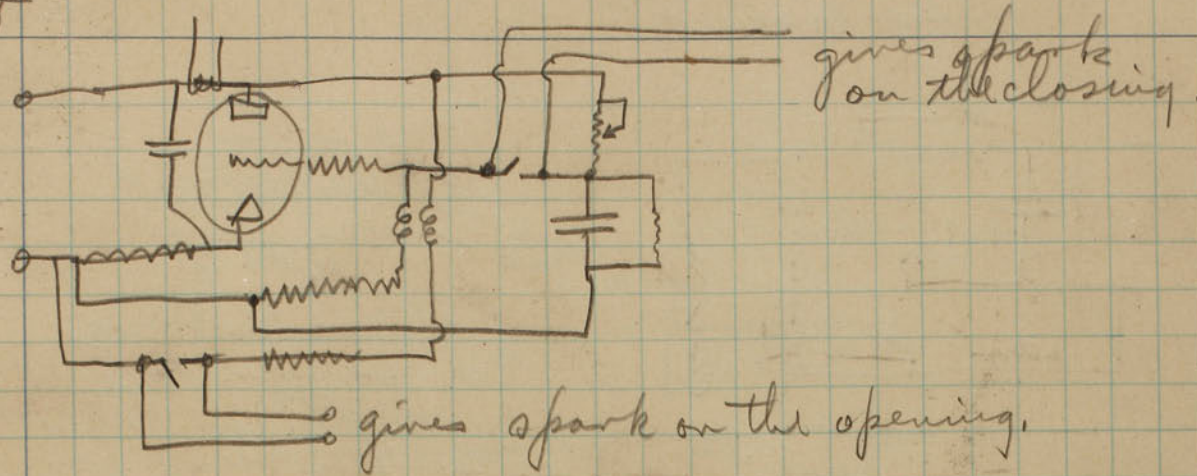 gives spark
on the closing
gives spark on the opening.